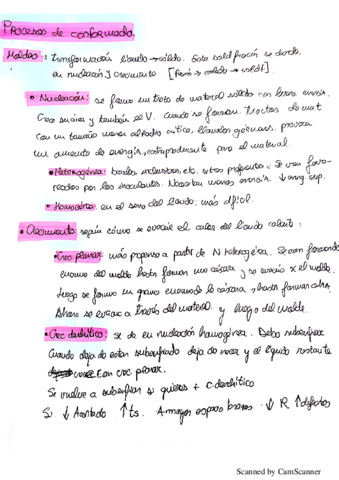 Procesos de conformado.
Moldeo: transformación líquido → sólido. Esta solidificación se divide
en nucleación y crecimiento
• Nucleación: se forma un trozo de material sólido con baja energía.
Crece energía y también el V. Cuando se forman trozos de mat
con un tamaño menor al radio crítico, llamados gérmenes, provoca
un aumento de energía, contraproducente para el material.
• Heterogénea: bordes, inclusiones, etc. sitios preferentes. Se ven favo-
recidos por los inoculantes. Necesitan menos energía ↓ energ. sup.
• Homogénea: en el seno del líquido; más difícil.
• Crecimiento: según cómo se evacúe el calor del líquido caliente:
• Crec planar: más propenso a partir de N heterogénea. Se van formando
encima del molde hasta formar una cáscara y se evacúa x el molde.
Luego se forma un grano encima de la cáscara y hasta formar otra.
Ahora se evacúa a través del material y luego del molde.
• Crec dendrítico: se da en nucleación homogénea. Debo subenfriar
Cuando deja de estar subenfriado deja de crecer y el líquido restante
crece con crec planar.
Se vuelve a subenfriar si quieres + c dendrítico
Si ↓ ↑ts. A mayor espacio brazos ↓ R ↑ defectos
Scanned by CamScanner